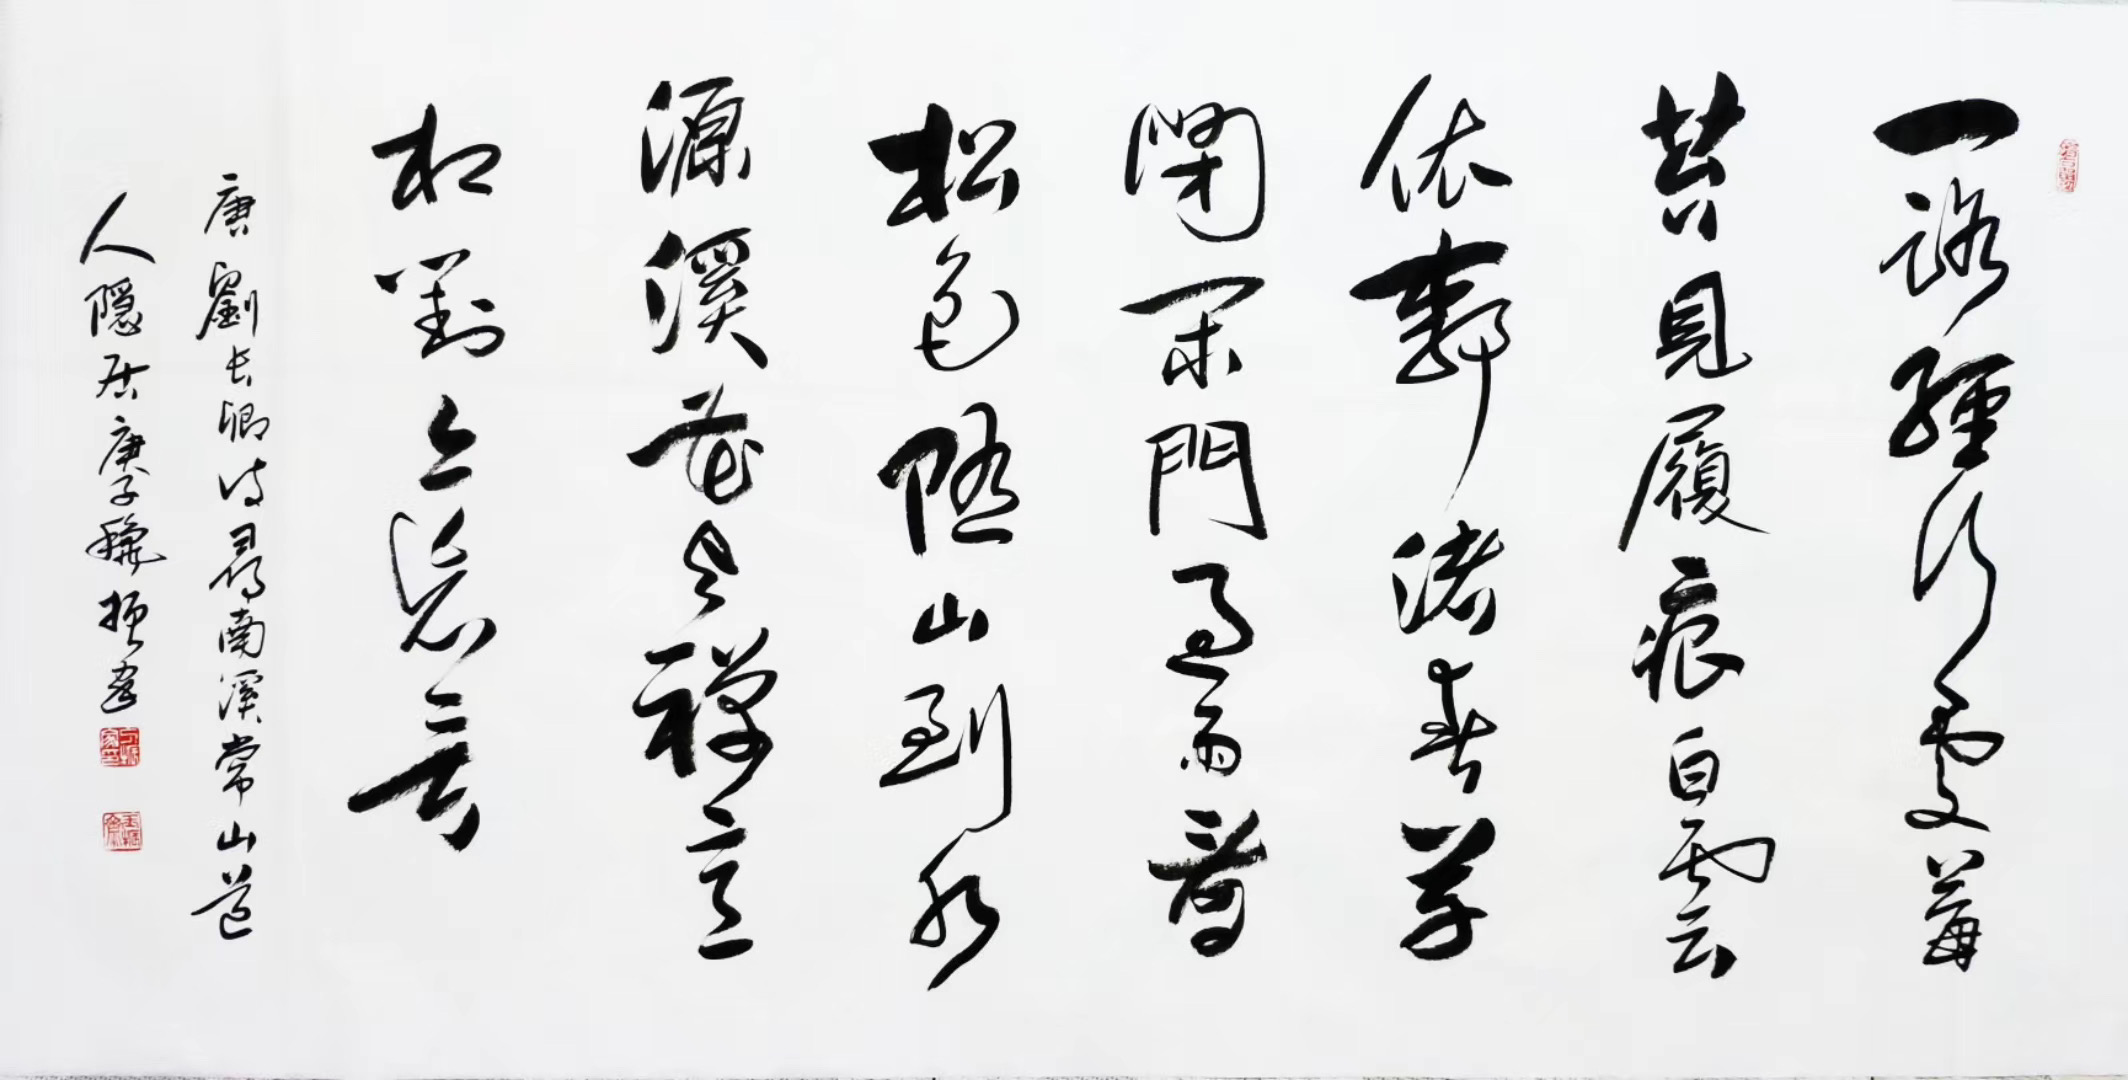 一路經行處莓
苔見履痕白雲
依靜渚春草
閉閑門過雨看
松色隨山到水
源溪花與禪意
相對亦忘言
唐劉長卿詩尋南溪常山道
人隱居庚子龝振